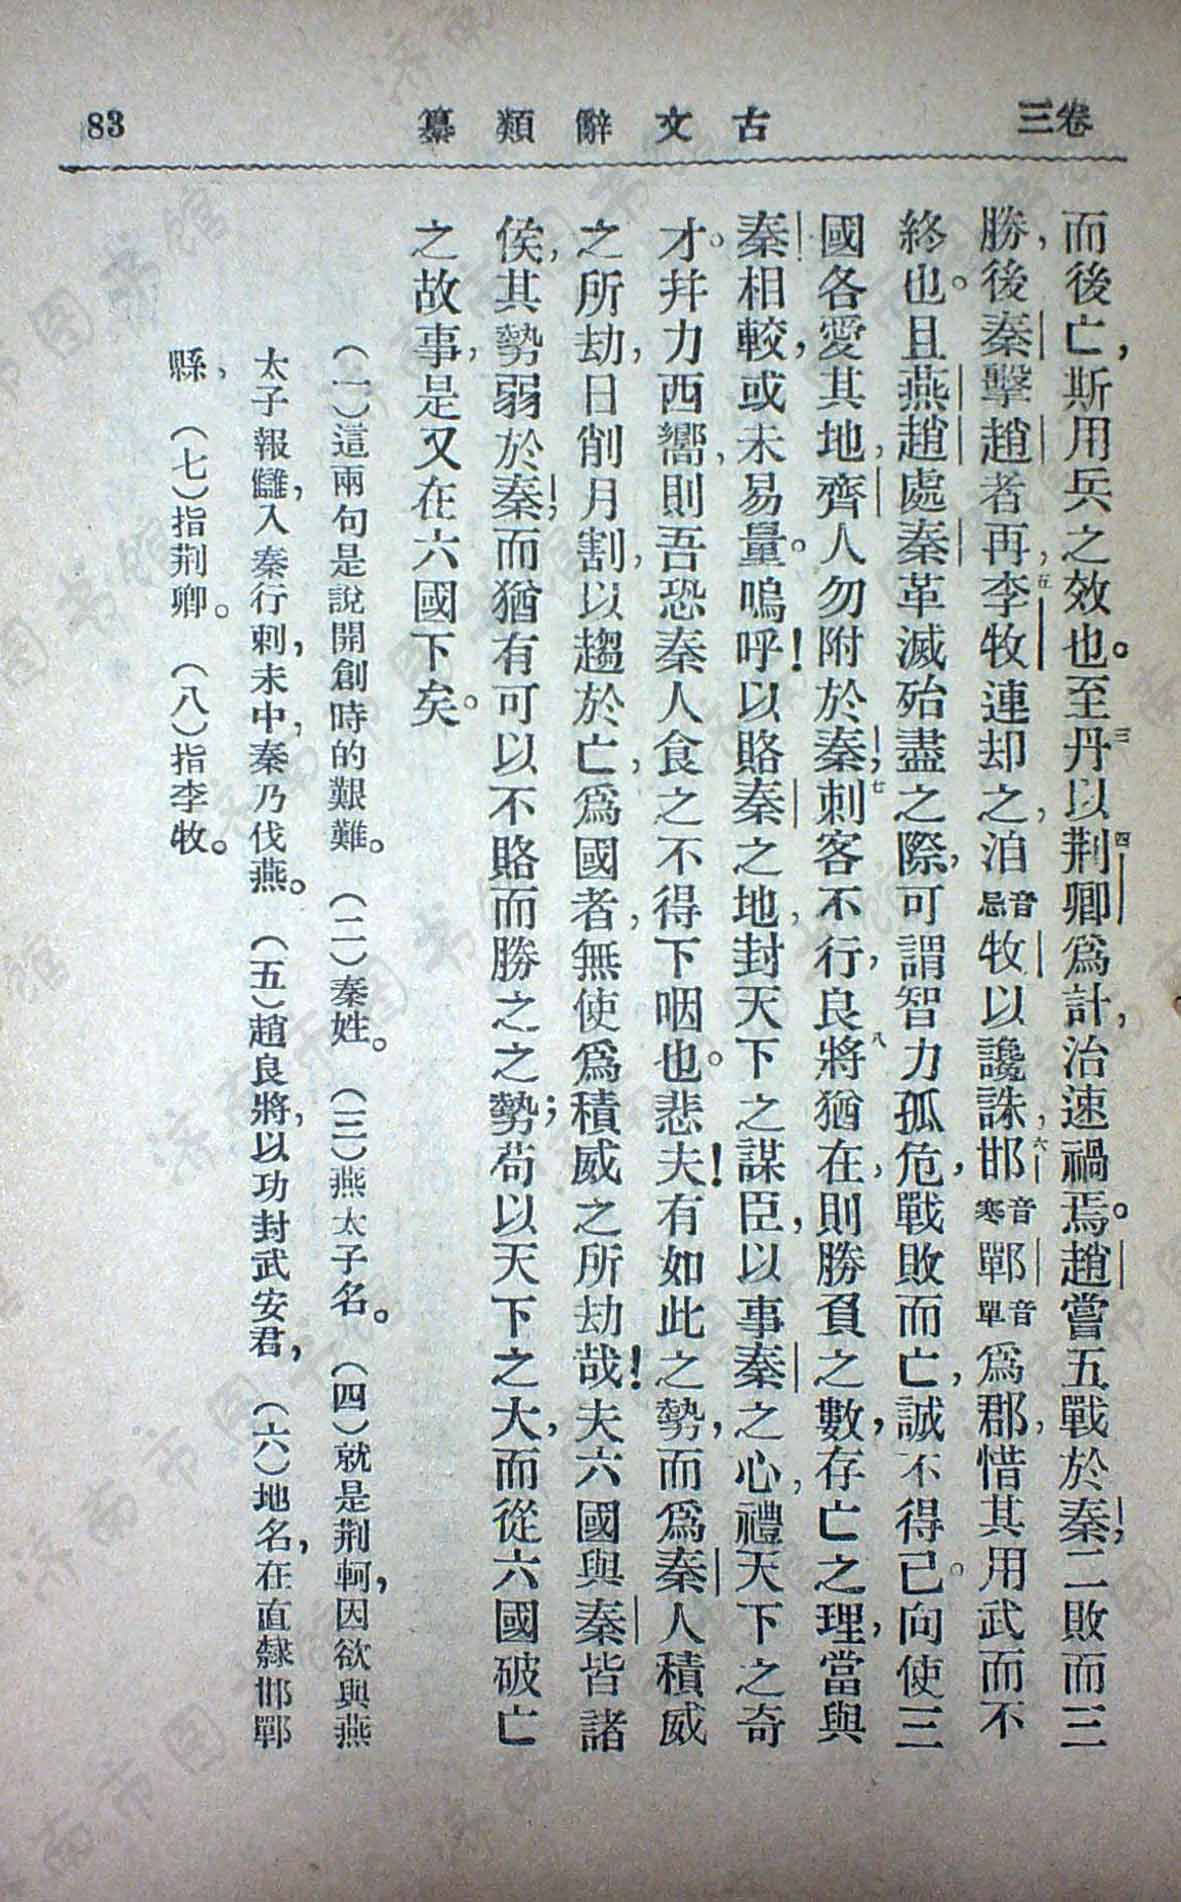 卷三
古文辭類纂
83
而後亡，斯用兵之效也。至丹三以荆卿四爲計，治速禍焉。趙嘗五戰於秦；二敗而三
勝，後秦擊趙者再，李牧五連却之，洎音忌牧以讒誅，邯六音寒鄲音單爲郡，惜其用武而不
終也。且燕趙處秦革滅殆盡之際，可謂智力孤危，戰敗而亡，誠不得已。向使三
國各愛其地，齊人勿附於秦；刺客七不行，良將八猶在，則勝負之數，存亡之理，當與
秦相較，或未易量。嗚呼！以賂秦之地，封天下之謀臣，以事秦之心，禮天下之奇
才。幷力西嚮，則吾恐秦人食之不得下咽也。悲夫！有如此之勢，而爲秦人積威
之所劫，日削月割，以趨於亡，爲國者，無使爲積威之所劫哉！夫六國與秦皆諸
侯，其勢弱於秦；而猶有可以不賂而勝之之勢；苟以天下之大，而從六國破亡
之故事，是又在六國下矣。
（一）這兩句是說開創時的艱難。（二）秦姓。（三）燕太子名。（四）就是荆軻，因欲與燕
太子報讎，入秦行刺，未中，秦乃伐燕。（五）趙良將，以功封武安君，（六）地名，在直隸邯鄲
縣，（七）指荆卿。（八）指李牧。